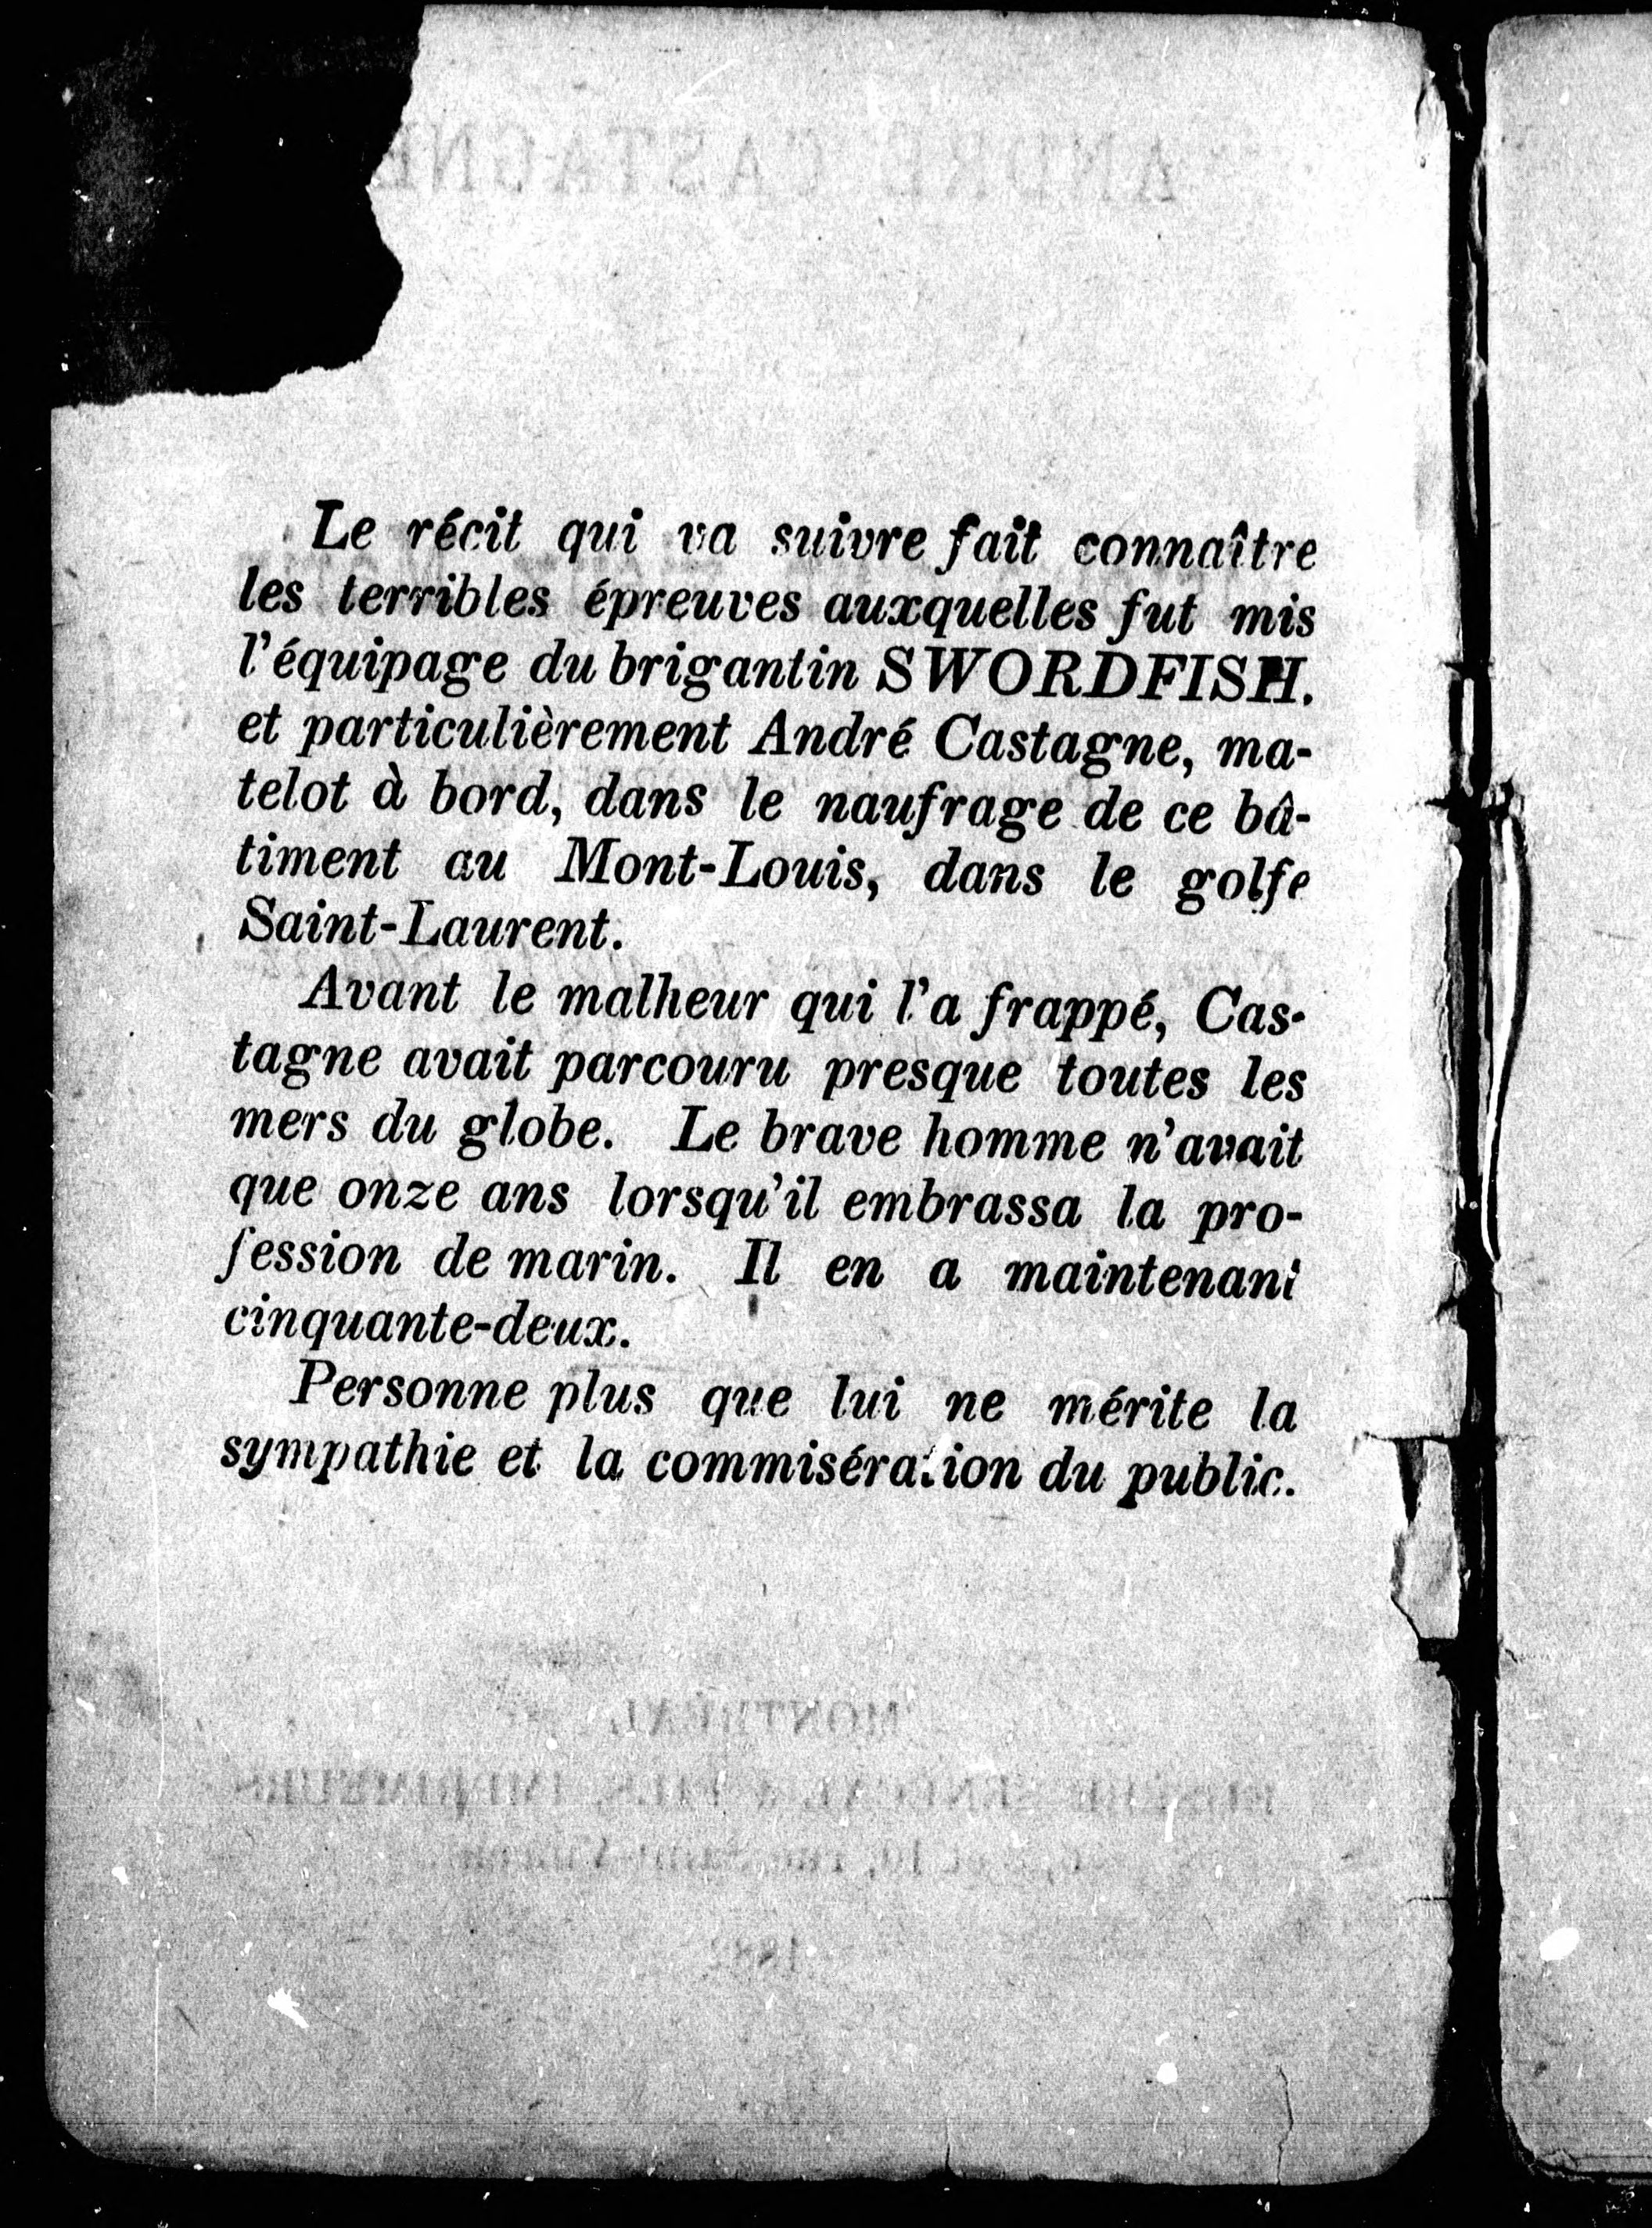 Le récit qui va suivre fait connaître
les terribles épreuves auxquelles fut mis
l'équipage du brigantin SWORDFISH.
et particulièrement André Castagne, ma-
telot à bord, dans le naufrage de ce bâ-
timent au Mont-Louis, dans le golfe
Saint-Laurent.
Avant le malheur qui l'a frappé, Cas-
tagne avait parcouru presque toutes les
mers du globe. Le brave homme n'avait
que onze ans lorsqu'il embrassa la pro-
fession de marin. Il en a maintenant
cinquante-deux.
Personne plus que lui ne mérite la
sympathie et la commisération du public.